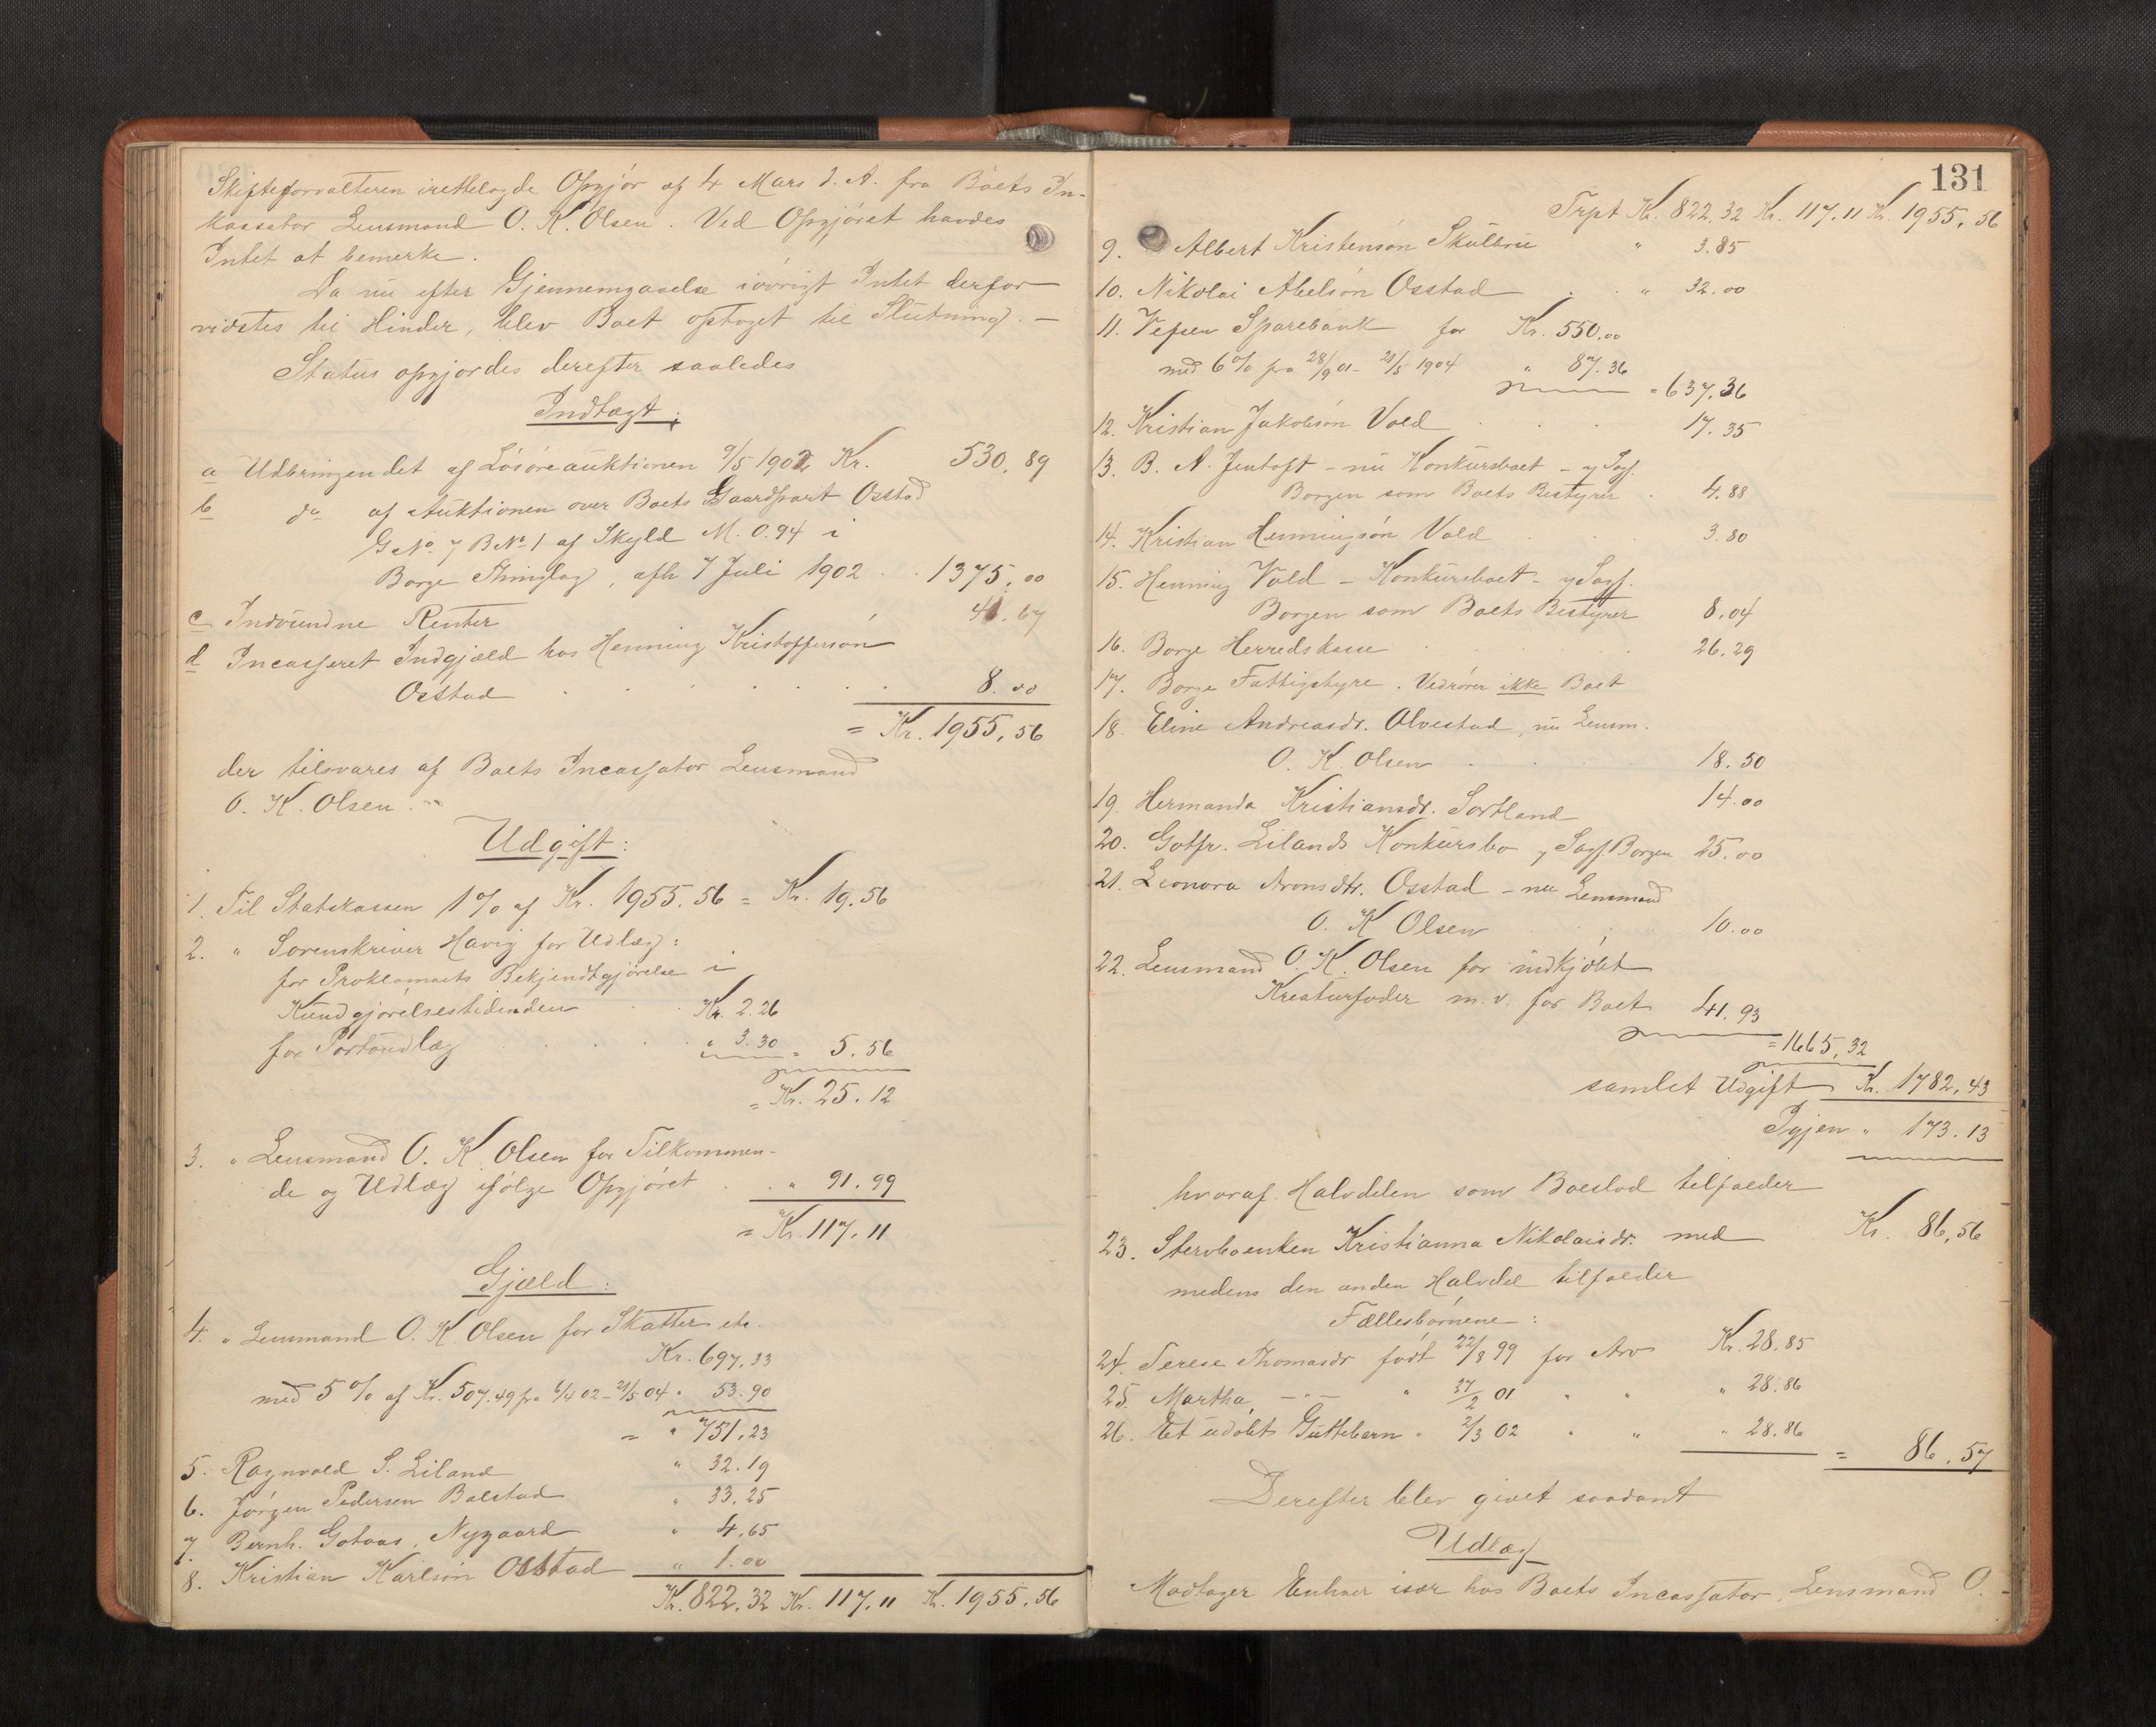 Skifteforvalteren irettelagde Opgjør af 4 Mars d. A. fra Boets In-
kassator Lensmand O. K. Olsen. Ved Opgjøret havdes
Intet at bemerke.
Da nu efter Gjennemgaaelse iøvrigt Intet derfor
vidstes til Hinder, blev Boet optaget til Slutning. —
Status opgjordes derefter saaledes
Indtægt:
a Udbringendet af Løsøreauktionen 9/5 1902 Kr. 530,89
b do af Auktionen over Boets Gaardpart Osstad
G.No 7 B.No 1 af Skyld M. 0.94 i
Borge Thinglag, afh 7 Juli 1902 . . 1375,00
c Indvundne Renter 41.67
d Incasseret Indgjæld hos Henning Kristoffersøn
Osstad 8.00
= Kr. 1955,56
der tilsvares af Boets Incassator Lensmand
O. K. Olsen. —
Udgift:
1. Til Statskassen 1 % af Kr. 1955.56 = Kr. 19.56
2. " Sorenskriver Havig for Udlæg:
for Proklamaets Bekjendtgjørelse i
Kundgjørelsestidenden . . Kr. 2.26
for Portoudlæg " 3.30 = 5.56
= Kr. 25.12
3. " Lensmand O. K. Olsen for Tilkommen-
de og Udlæg ifølge Opgjøret . . " 91.99
= Kr. 117.11
Gjæld:
4. " Lensmand O. K. Olsen for Skatter etc.
Kr. 697.33
med 5 % af Kr. 507.49 fra 6/4 02 - 21/5 04 " 53.90
= " 751.23
5. Ragnvald S. Liland " 32.19
6. Jørgen Pedersen Balstad " 33.25
7. Bernh. Gotaas, Nygaard " 4.65
8. Kristian Karlsøn Osstad " 1.00
Kr. 822.32 Kr. 117.11 Kr. 1955.56
131
Trpt Kr. 822,32 Kr. 117.11 Kr. 1955,56
9. Albert Kristensøn Skulbru " 3.85
10. Nikolai Abelsøn Osstad . . " 32.00
11. Vepsen Sparebank for Kr. 550.00
med 6 % fra 28/9 01 - 21/5 1904 " 87.36
= 637.36
12. Kristian Jakobsøn Vold . . . 17.35
13. B. A. Jentoft - nu Konkursboet - v Sagf.
Borgen som Boets Bestyrer . 4.88
14. Kristian Henningsøn Vold . . . 3.80
15. Henning Vold - Konkursboet - v Sagf.
Borgen som Boets Bestyrer 8.04
16. Borge Herredskasse 26.29
17. Borge Fattigstyre. Vedrører ikke Boet
18. Eline Andreasdr. Alvestad, nu Lensm.
O. K. Olsen . . . 18.50
19. Hermanda Kristiansdr. Sortland 14.00
20. Gotfr. Lilands Konkursbo v Sagf. Borgen 25.00
21. Leonora Aronsdtr. Osstad - nu Lensmand
O. K Olsen 10.00
22. Lensmand O. K. Olsen for indkjøbt
Kreaturfoder m. v. for Boet 41.93
= 1665,32
samlet Udgift Kr. 1782,43
Igjen " 173.13
hvoraf Halvdelen som Boeslod tilfalder
23. Stervboenken Kristianna Nikolaisdr. med Kr. 86,56
medens den anden Halvdel tilfalder
Fællesbørnene:
24. Terese Thomasdr født 22/8 99 for Arv Kr. 28.85
25. Martha —"— " 27/2 01 " " " 28.86
26. Et udøbt Guttebarn " 2/3 02 " " " 28.86 = 86,57
Derefter blev givet saadant
Udlæg
Modtager Enhver især hos Boets Incassator, Lensmand O.